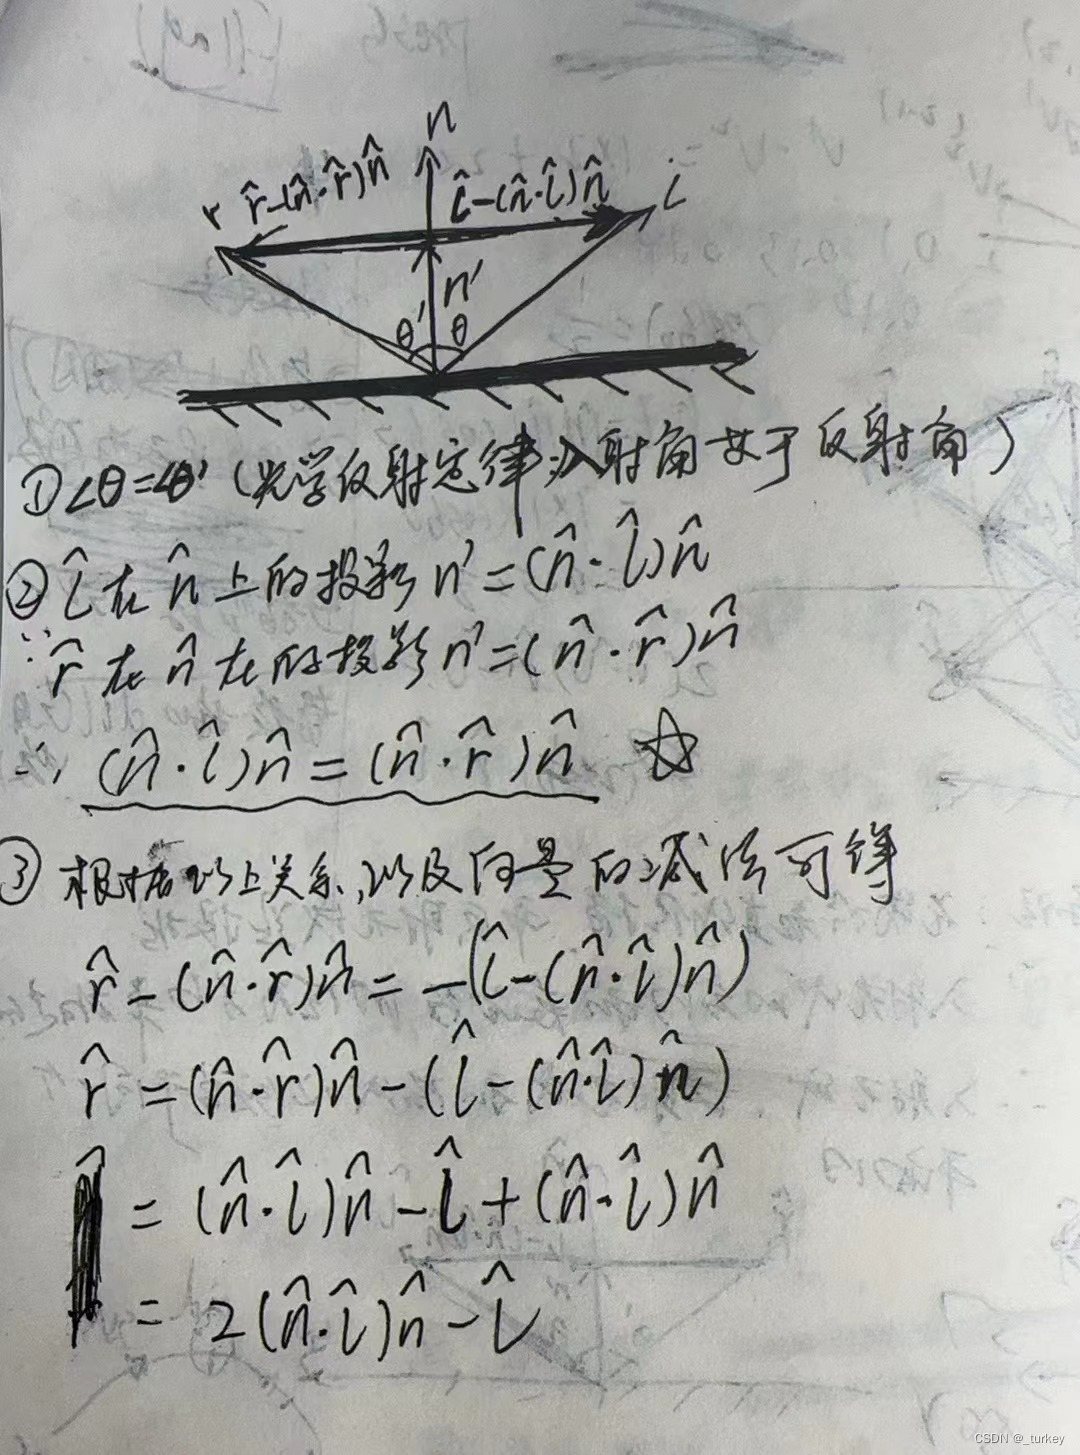 n
r r̂-(n̂·r̂)n̂ l̂-(n̂·l̂)n̂ l
n'
θ' θ
①∠θ=∠θ'(光学反射定律:入射角大于反射角)
②l̂在n̂上的投影n'=(n̂·l̂)n̂
∵r̂在n̂在的投影n'=(n̂·r̂)n̂
∴(n̂·l̂)n̂=(n̂·r̂)n̂ ☆
③根据以上关系,以及向量的减法可得
r̂-(n̂·r̂)n̂=-(l̂-(n̂·l̂)n̂)
r̂=(n̂·r̂)n̂-(l̂-(n̂·l̂)n̂)
=(n̂·l̂)n̂-l̂+(n̂·l̂)n̂
=2(n̂·l̂)n̂-l̂
CSDN @_turkey